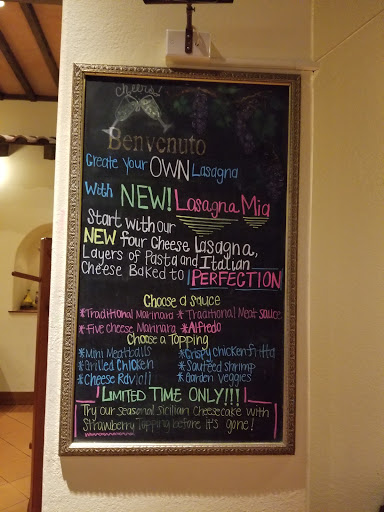 cheers!
Benvenuto
Create Your OWN Lasagna
With NEW! Lasagna Mia
Start with our
NEW four Cheese Lasagna,
Layers of Pasta and Italian
Cheese Baked to PERFECTION
Choose a sauce
*Traditional Marinara *Traditional Meat sauce
*Five Cheese Marinara *Alfredo
Choose a Topping
*Mini Meatballs *Crispy chicken fritta
*Grilled Chicken *Sautéed shrimp
*Cheese Ravioli *Garden veggies
LIMITED TIME ONLY!!!
Try our seasonal Sicilian Cheesecake with
Strawberry topping before it's gone!